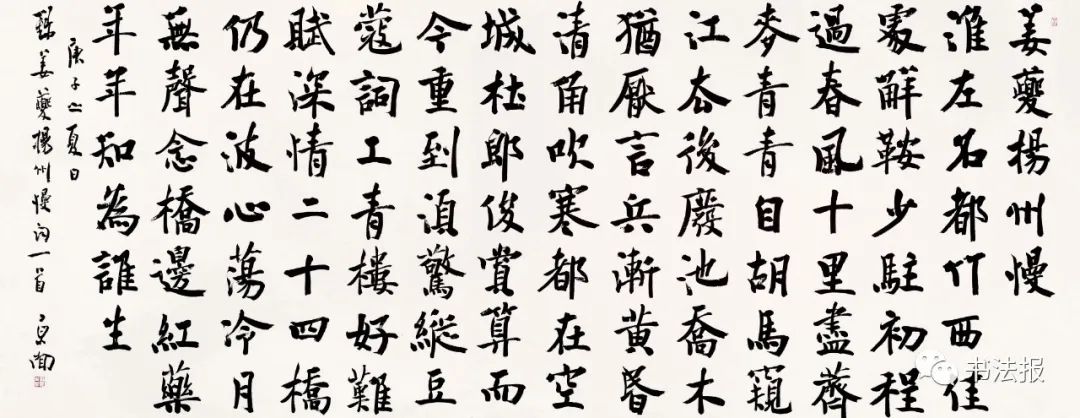 姜夔揚州慢
淮左名都竹西佳
處解鞍少駐初程
過春風十里盡薺
麥青青自胡馬窺
江去後廢池喬木
猶厭言兵漸黃昏
清角吹寒都在空
城杜郎俊賞算而
今重到須驚縱豆
蔻詞工青樓好難
賦深情二十四橋
仍在波心蕩冷月
無聲念橋邊紅藥
年年知為誰生
庚子之夏日
錄姜夔揚州慢詞一首
书法报